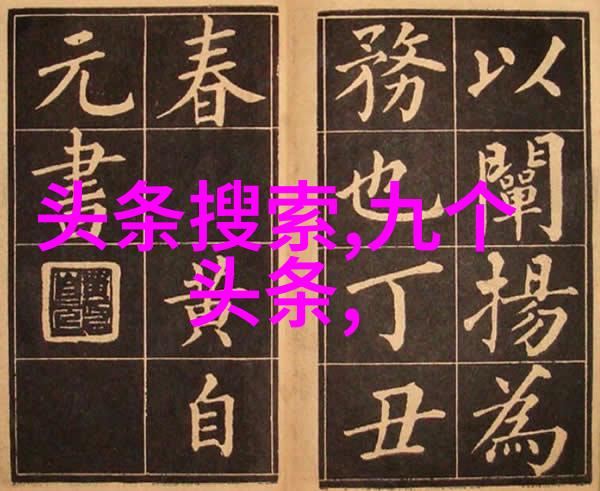 以闡揚為
務也丁丑
春 黃自
元書
头条搜索,九个
头条,